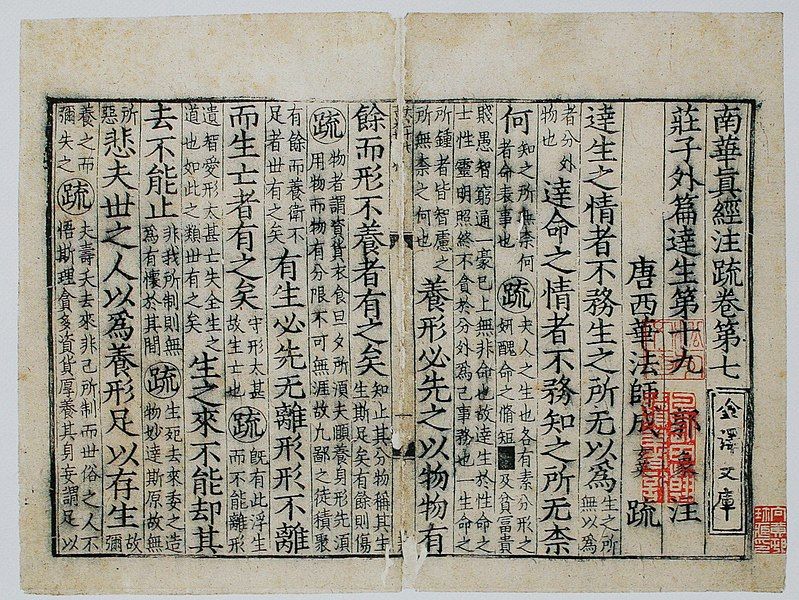 南華真經注疏卷第七
金澤文庫
莊子外篇達生第十九 郭象注
唐西華法師成玄英疏
達生之情者不務生之所无以為 生之所無以為
者分外物也 達命之情者不務知之所无柰
何 知之所無柰何者命表事也 疏 夫人之生也各有素分形之妍醜命之脩短及貧富貴
賤愚智窮通一豪已上無非命也故達生於性命之士性靈明照終不貪於分外為己事務也一生命之
所鍾者皆智慮之所無柰之何也 養形必先之以物物有
餘而形不養者有之矣 知止其分物稱其生生斯足矣有餘則傷
疏 物者謂資貨衣食旦夕所須夫頤養身形先須用物而物有分限不可無涯故九鄙之徒積聚
有餘而養衛不足者世有之矣 有生必先无離形形不離
而生亡者有之矣 守形太甚故生亡也 疏 既有此浮生而不能離形
遺智愛形太甚亡失全生之道也如此之類世有之矣 生之來不能却其
去不能止 非我所制則無為有懷於其間 疏 生死去來委之造物妙達斯原故無
所惡 悲夫世之人以為養形足以存生 故彌
養之而彌失之 疏 夫壽夭去來非己所制而世俗之人不悟斯理貪多資貨厚養其身妄謂足以